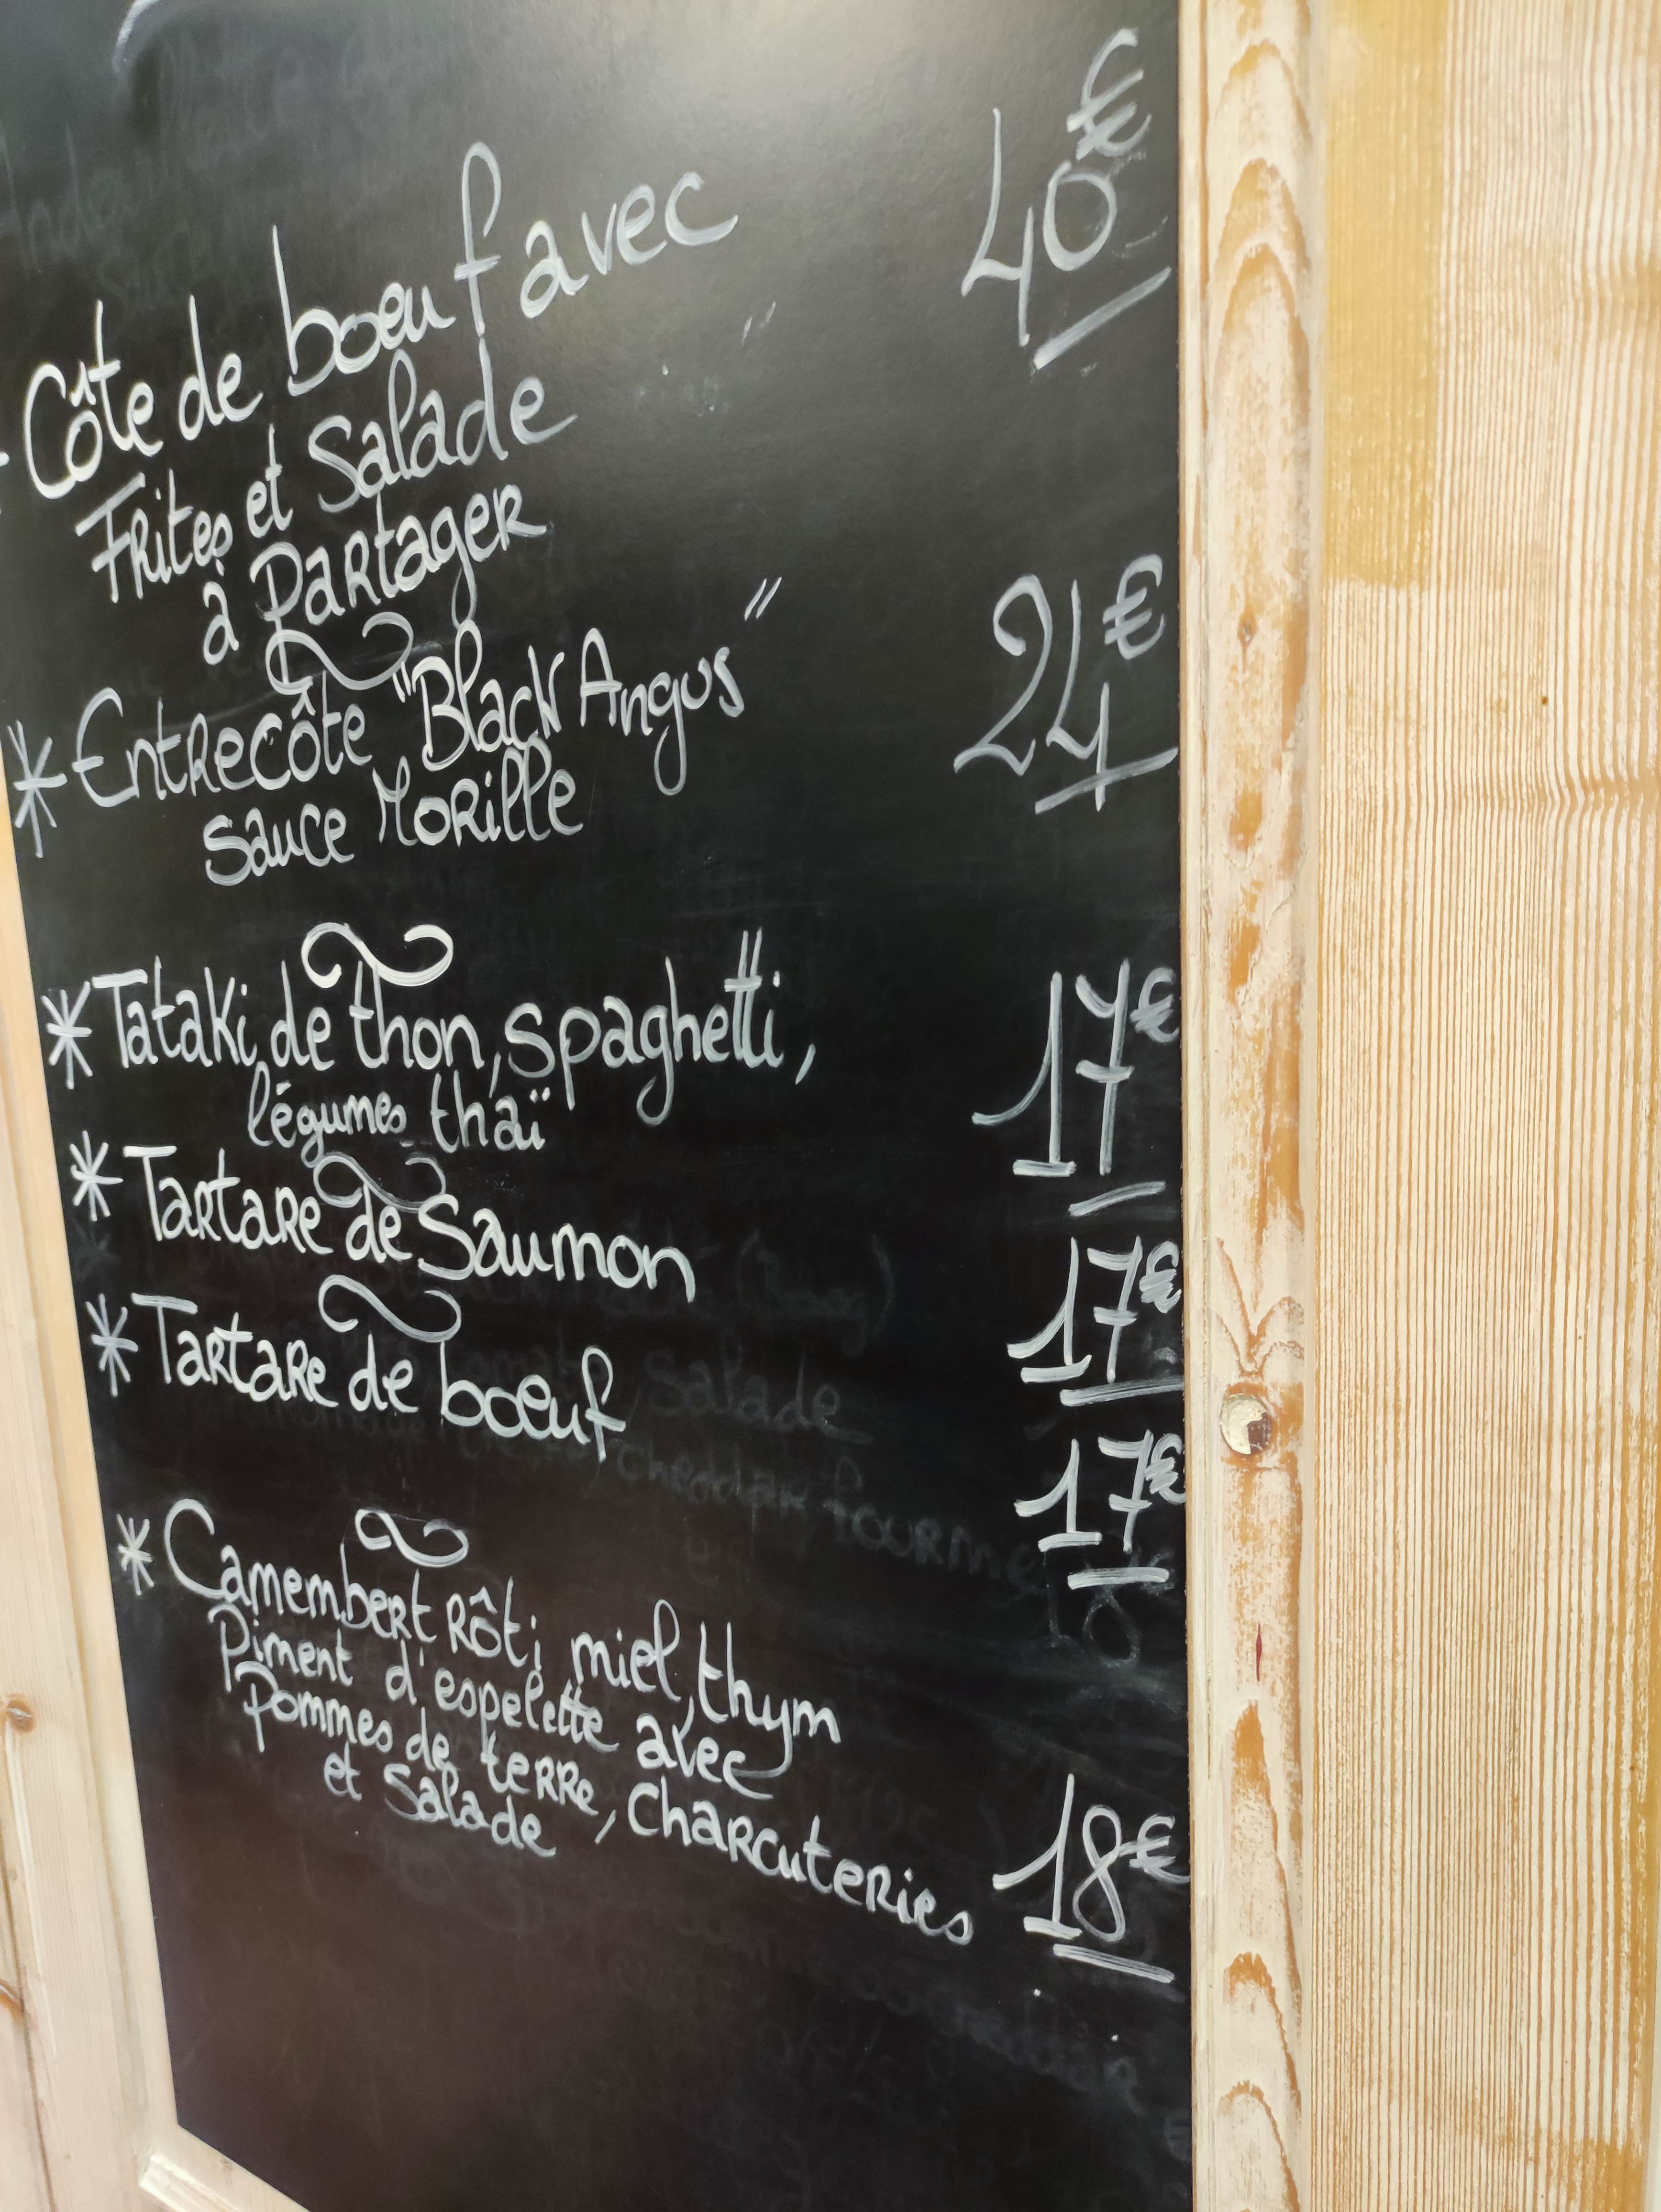 Côte de boeuf avec 40€
Frites et Salade
à Partager
* Entrecôte "Black Angus" 24€
sauce Morille
* Tataki de thon, spaghetti, 17€
légumes thaï
* Tartare de Saumon 17€
* Tartare de bœuf 17€
* Camembert Rôti miel, thym
Piment d'espelette avec
Pommes de terre, Charcuteries 18€
et Salade